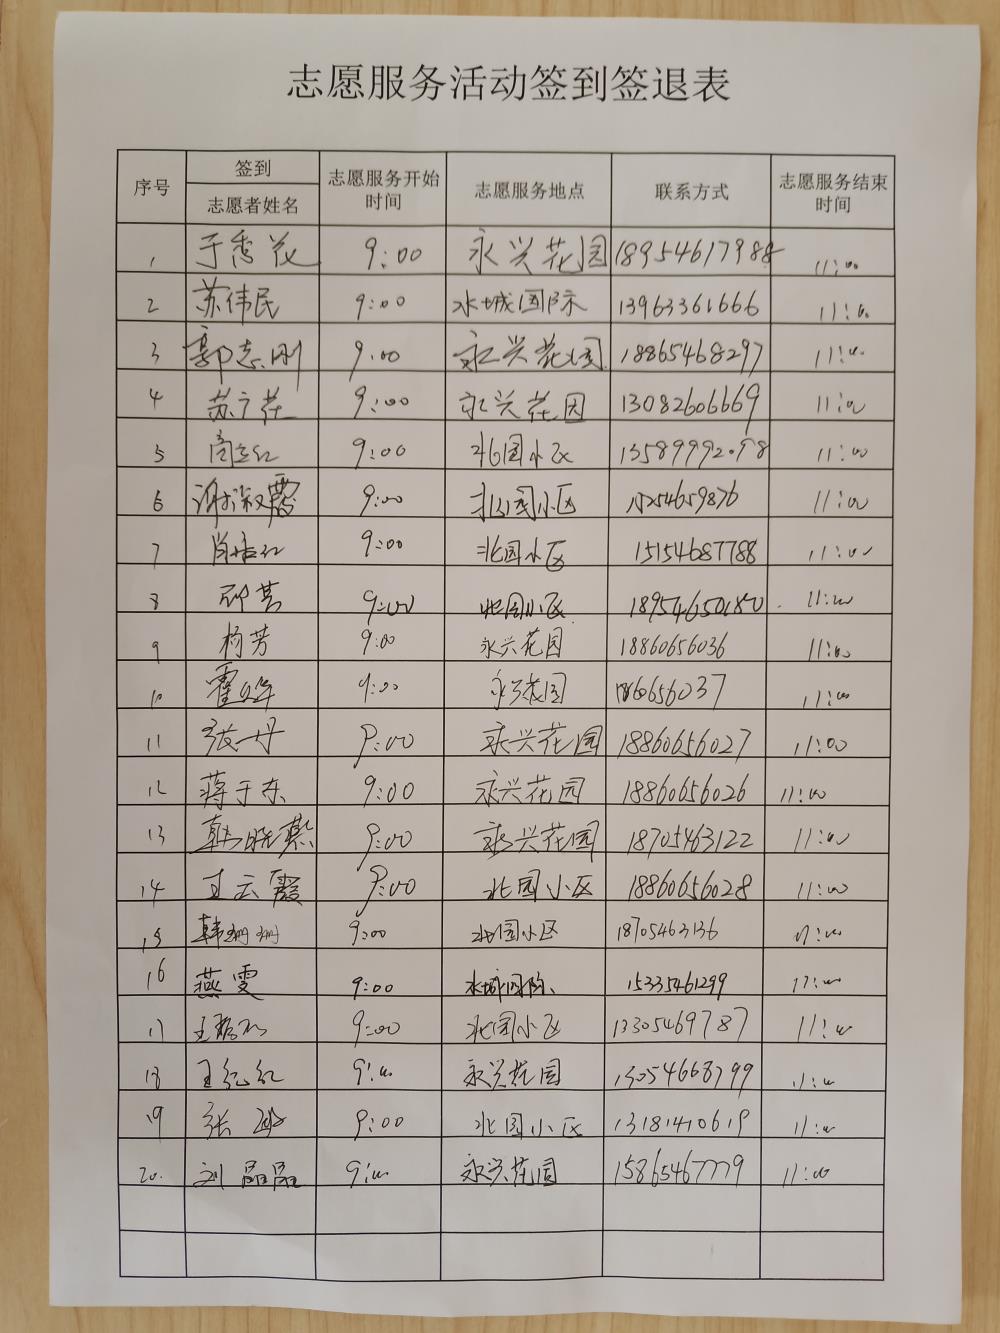 志愿服务活动签到签退表
序号 签到 志愿者姓名 志愿服务开始时间 志愿服务地点 联系方式 志愿服务结束时间
1 于秀花 9:00 永兴花园 18954617988 11:00
2 苏伟民 9:00 水城国际 13963361666 11:00
3 郭志刚 9:00 永兴花园 18865468297 11:00
4 苏广花 9:00 永兴花园 13082606669 11:00
5 9:00 北园小区 13589992098 11:00
6 谢淑霞 9:00 北园小区 15254659876 11:00
7 9:00 北园小区 15154687788 11:00
8 9:00 北园小区 18954650180 11:00
9 杨芳 9:00 永兴花园 18860656036 11:00
10 9:00 永兴花园 11:00
11 张丹 9:00 永兴花园 18860656027 11:00
12 蒋于东 9:00 永兴花园 18860656026 11:00
13 韩晓燕 9:00 永兴花园 18705463122 11:00
14 王云霞 9:00 北园小区 18860656028 11:00
15 韩珊珊 9:00 北园小区 18705463136 11:00
16 燕雯 9:00 水城国际 15335461299 11:00
17 9:00 北园小区 13305469787 11:00
18 王纪红 9:00 永兴花园 13054668799 11:00
19 张 9:00 北园小区 13181410619 11:00
20. 刘晶晶 9:00 永兴花园 15865467779 11:00